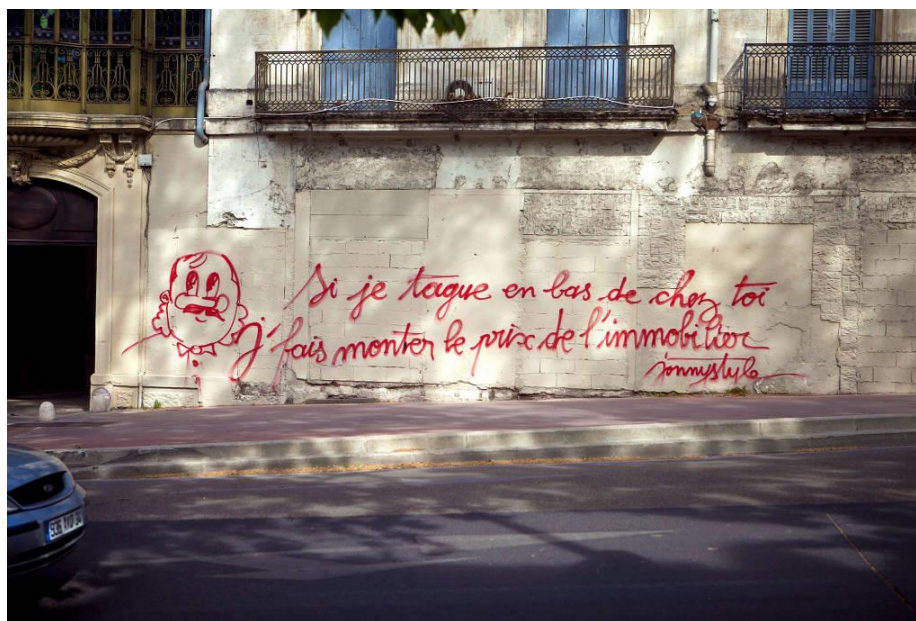 Si je tague en bas de chez toi
j'fais monter le prix de l'immobilier
jonnystyle